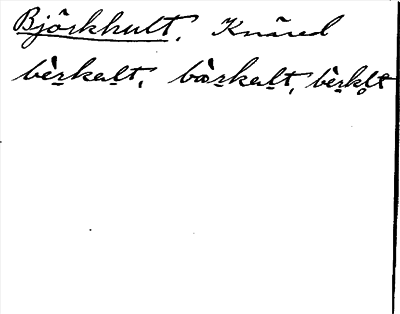 Björkhult, Knäred
bèr̠kal̠t, bær̠̀kal̠t, bèr̠kl̥t